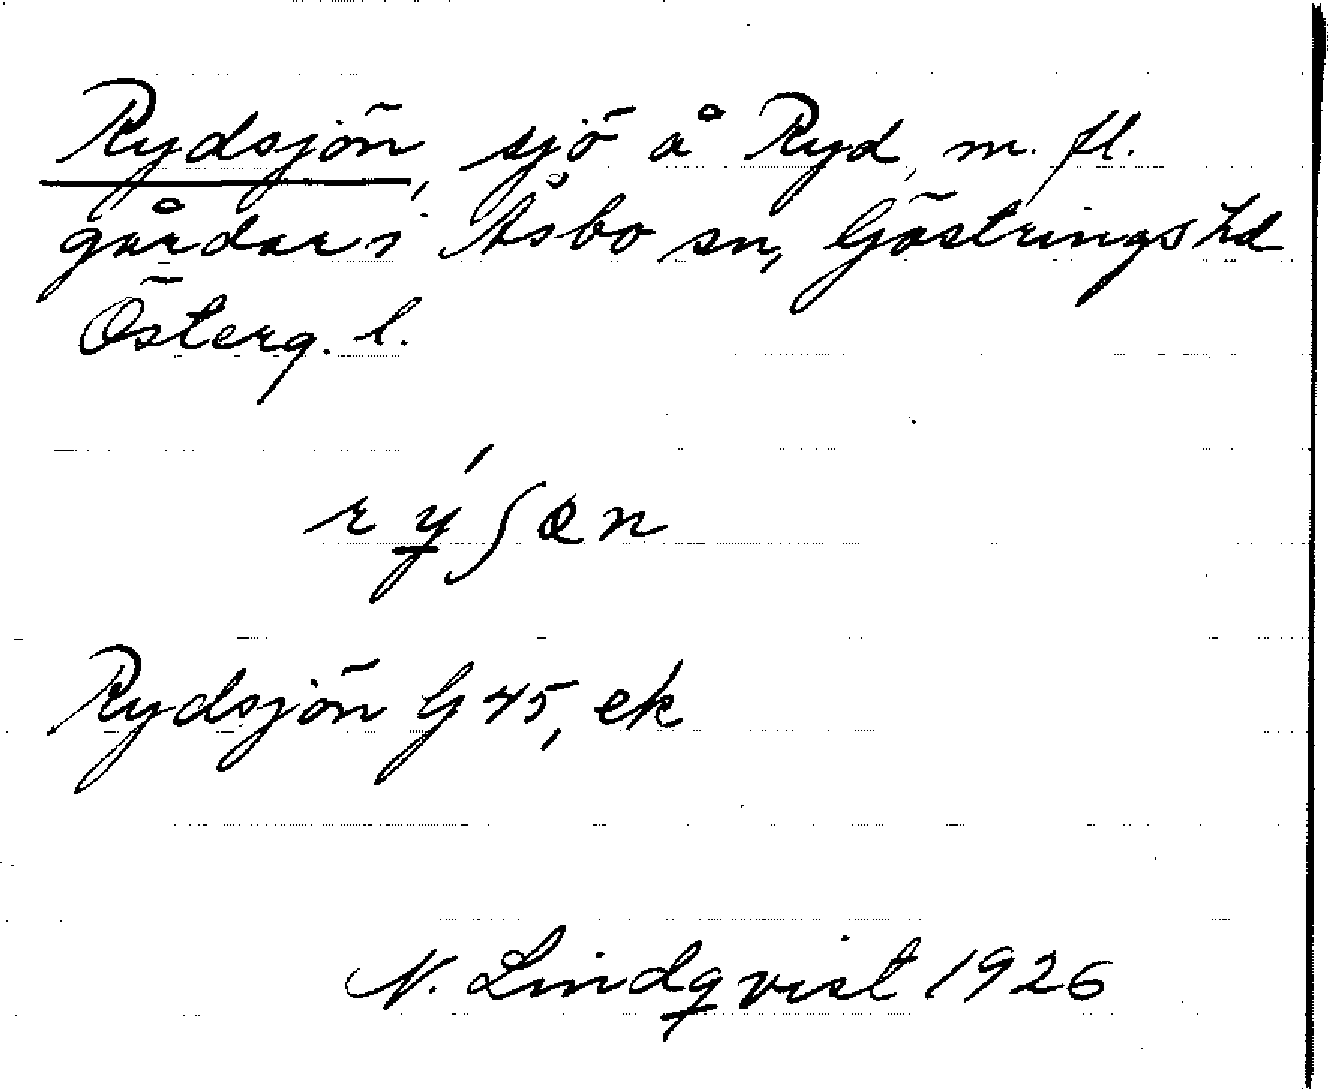 Rydsjön, sjö å Ryd m. fl.
gårdar i Åsbo sn, Göstrings hd
Österg. l.
rýʃæn
Rydsjön G 45, ek
N. Lindqvist 1926